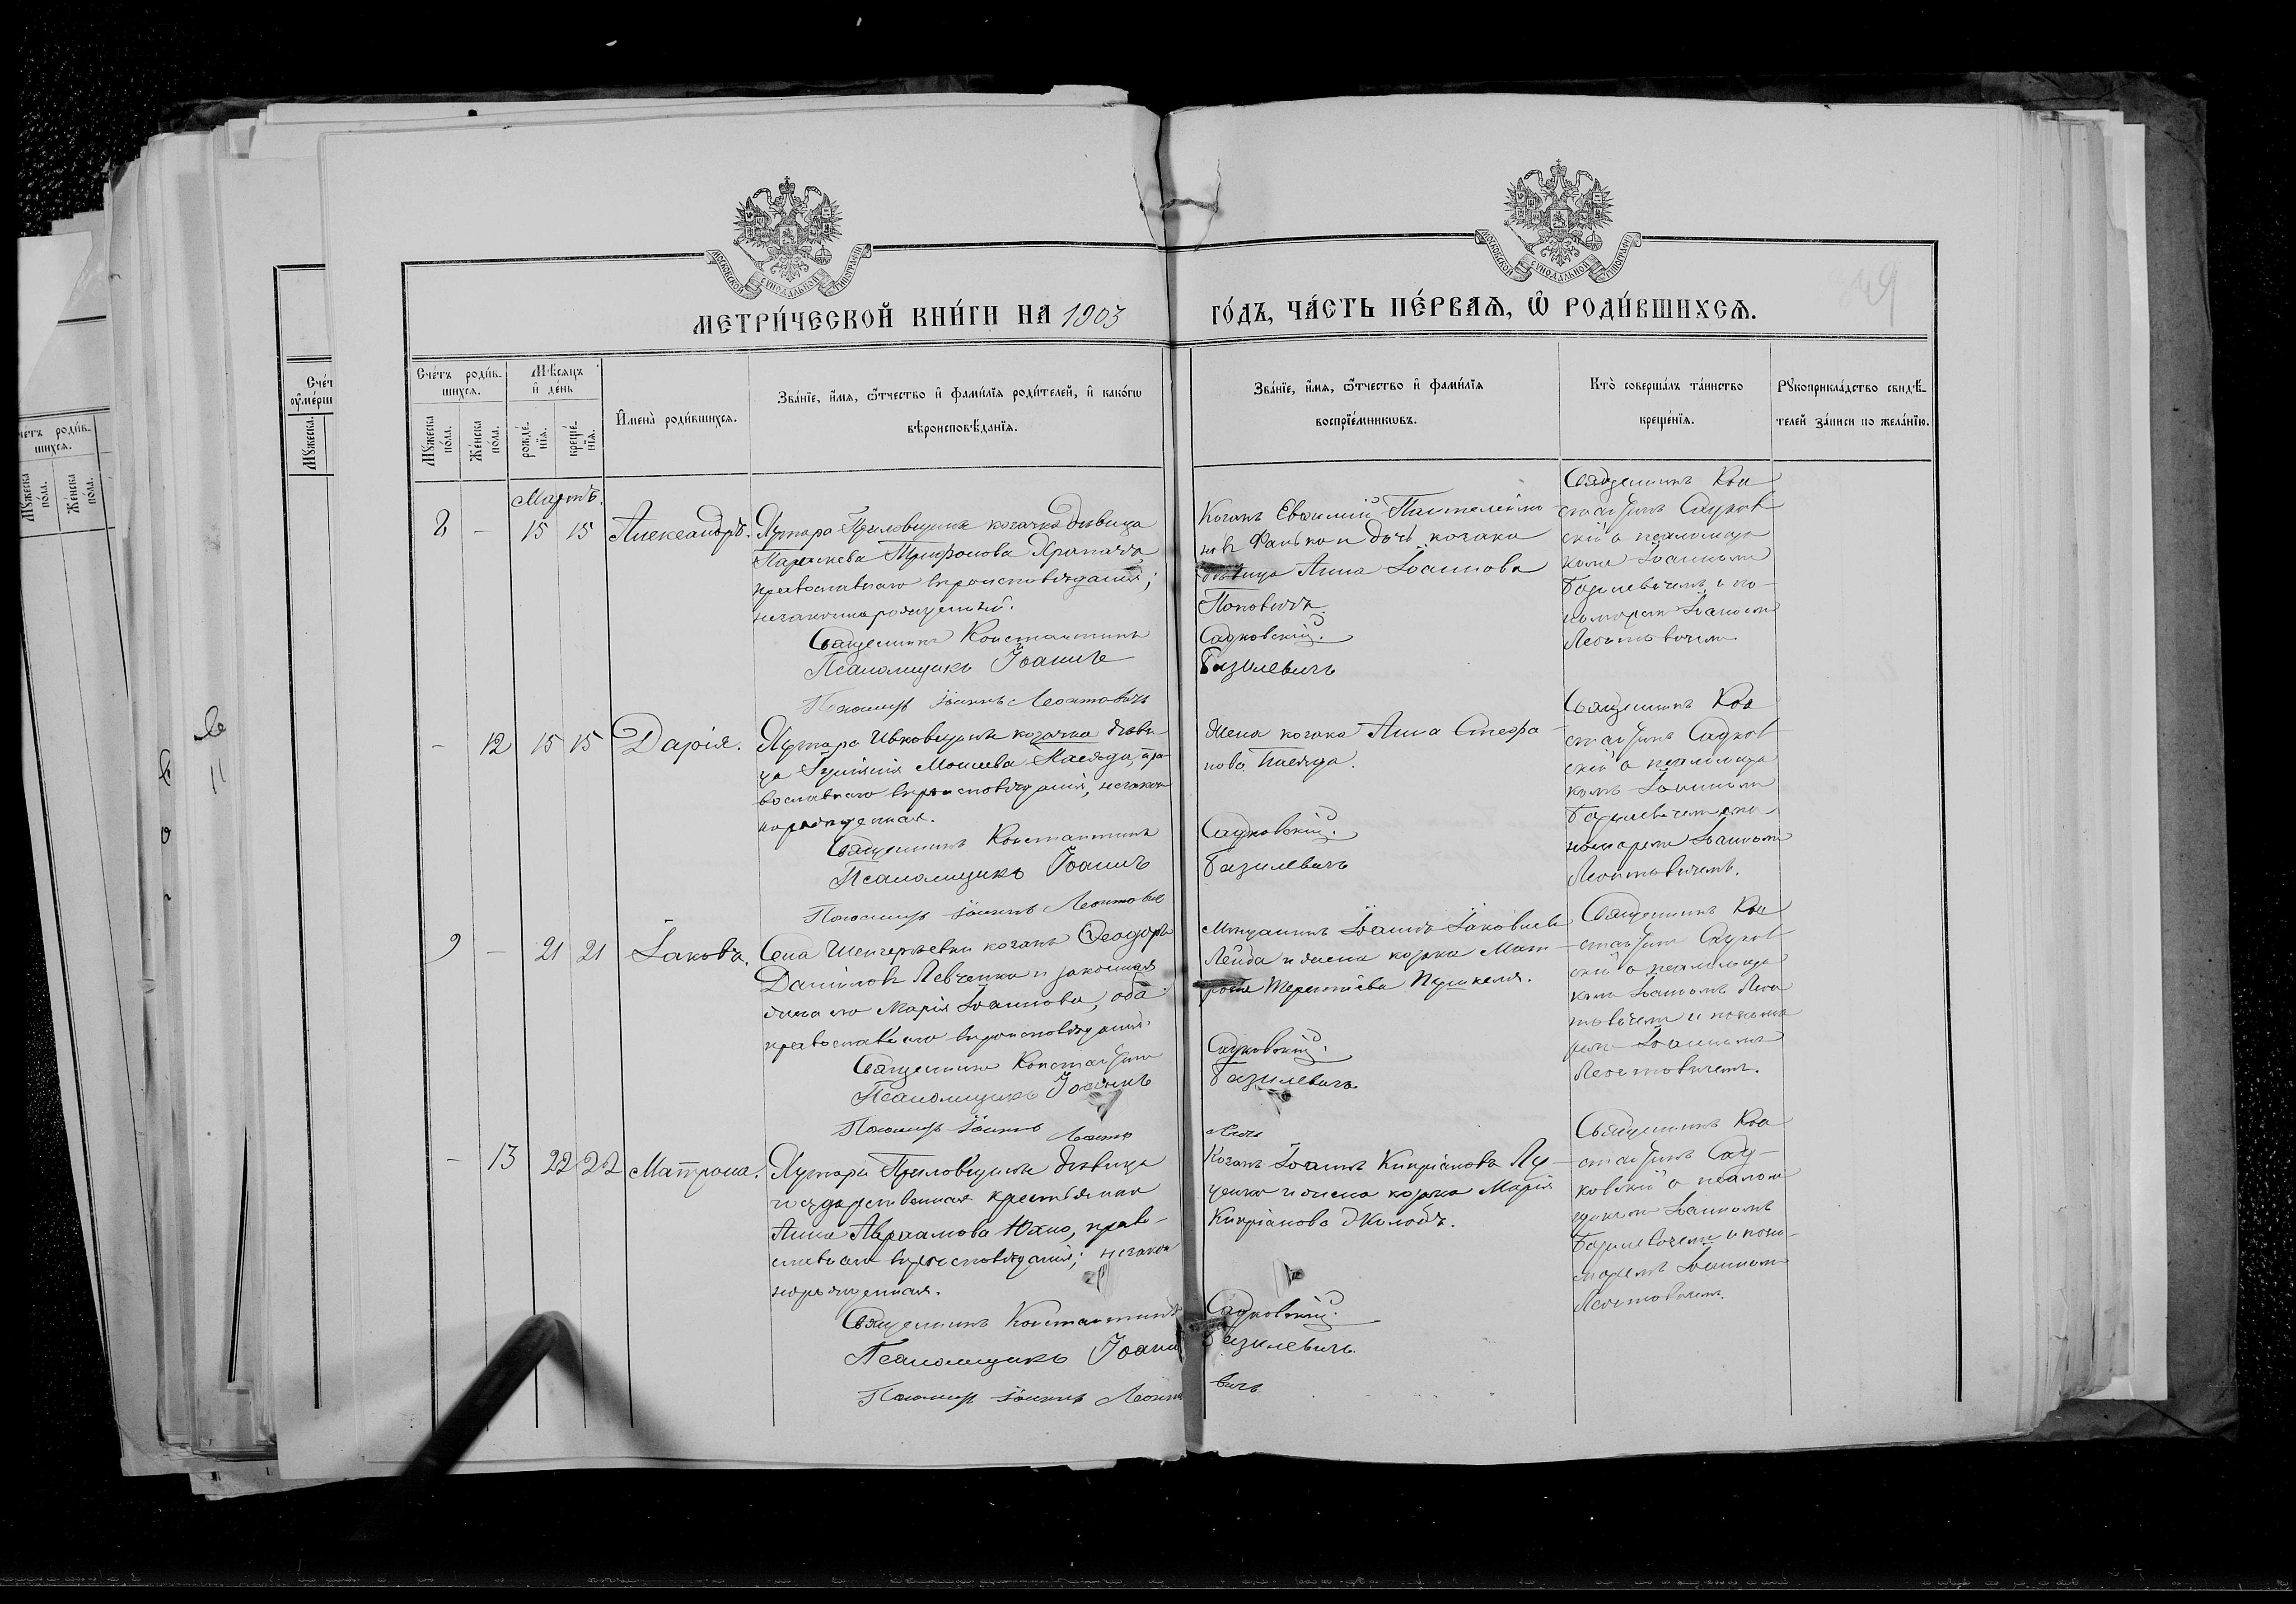 МОСКОВСКОЙ СѴНОДАЛЬНОЙ ТИПОГРАФІИ
МОСКОВСКОЙ СѴНОДАЛЬНОЙ ТИПОГРАФІИ
МЕТРИ́ЧЕСКОЙ КНИ́ГИ НА 1903
ГО́ДЪ, ЧА́СТЬ ПЕ́РВАѦ, Ѡ РОДИ́ВШИХСѦ.
149
Сче́тъ роди́в-
шихсѧ.
Мꙋ́жеска по́ла.
Же́нска по́ла.
Мѣ́сѧцъ
и де́нь
рожде́-
нїѧ.
креще́-
нїѧ.
И҆мена̀ роди́вшихсѧ.
Зва́нїе, и҆́мѧ, ѻ҆́тчество и҆ фами́лїѧ роди́телей, и҆ како́гѡ
вѣроисповѣ́данїѧ.
Зва́нїе, и҆́мѧ, ѻ҆́тчество и҆ фами́лїѧ
воспрїе́мникѡвъ.
Кто̀ соверша́лъ та́инство
креще́нїѧ.
Рꙋкоприкла́дство свидѣ́-
телей за́писи по жела́нїю.
Мартъ.
8 - 15 15 Александръ.
Хутора Прыловщины козачка девица
Параскева Трифонова Храпачъ,
православнаго вѣроисповѣданія;
незаконнорожденный.
Священникъ Константинъ
Псаломщикъ Іоаннъ
Пономарь Іоаннъ Леонтовичъ
Козакъ Евфимій Пантелеймо-
новъ Фанько и дочь козака
дѣвица Анна Іоаннова
Поповичъ.
Садковскій.
Базилевичъ
Священникъ Кон-
стантинъ Садков-
скій с псаломщи-
комъ Іоанномъ
Базилевичемъ и по-
номаремъ Іоанномъ
Леонтовичемъ.
- 12 15 15 Дарія.
Хутора Ивковщины козачка дѣви-
ца Моисеева Паляда, пра-
вославнаго вѣроисповѣданія, незакон-
норожденная.
Священникъ Константинъ
Псаломщикъ Іоаннъ
Пономарь Іоаннъ Леонтовичъ
Жена козака Анна Стефа-
нова
Садковскій.
Базилевичъ
Священникъ Кон-
стантинъ Садков-
скій с псаломщи-
комъ Іоанномъ
Базилевичемъ и по-
номаремъ Іоанномъ
Леонтовичемъ.
9 - 21 21 Іаковъ.
Села козакъ Ѳеодоръ
Даніиловъ Левченко и законная
жена его Марія Іоаннова, оба
православнаго вѣроисповѣданія.
Священникъ Константинъ
Псаломщикъ Іоаннъ
Пономарь Іоаннъ Леонто
Мещанинъ Іоаннъ Іаковлевъ
Лейда и жена козака Мат-
рона Терентіева
Садковскій.
Базилевичъ
вичъ
Священникъ Кон-
стантинъ Садков-
скій с псаломщи-
комъ Іоанномъ Леон-
товичемъ и понома-
ремъ Іоанномъ
Леонтовичемъ.
- 13 22 22 Матрона.
Хутора Прыловщины дѣвица
государственная крестьянка
Анна Авраамова Юхно, право-
славнаго вѣроисповѣданія; незакон-
норожденная.
Священникъ Константинъ
Псаломщикъ Іоаннъ
Пономарь Іоаннъ Леонто
Козакъ Іоаннъ Кипріановъ Лу-
ценко и жена козака Марія
Кипріанова Жколобъ.
Садковскій.
Базилевичъ.
вичъ
Священникъ Кон-
стантинъ Сад-
ковскій с псалом-
щикомъ Іоанномъ
Базилевичемъ и поно-
маремъ Іоанномъ
Леонтовичемъ.